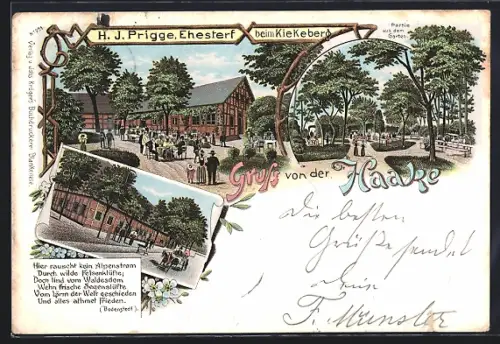 H. J. Prigge, Ehestorf beim KieKeberg
Partie
aus dem
Garten
Gruß von der Haake
Die besten
Grüße sendet
F. Münster
Hier rauscht kein Alpenstrom
Durch wilde Felsenklüfte;
Doch lind vom Waldesdom
Weh'n frische Segenslüfte,
Vom Lärm der Welt geschieden
Und alles athmet Frieden.
(Bodenstedt).